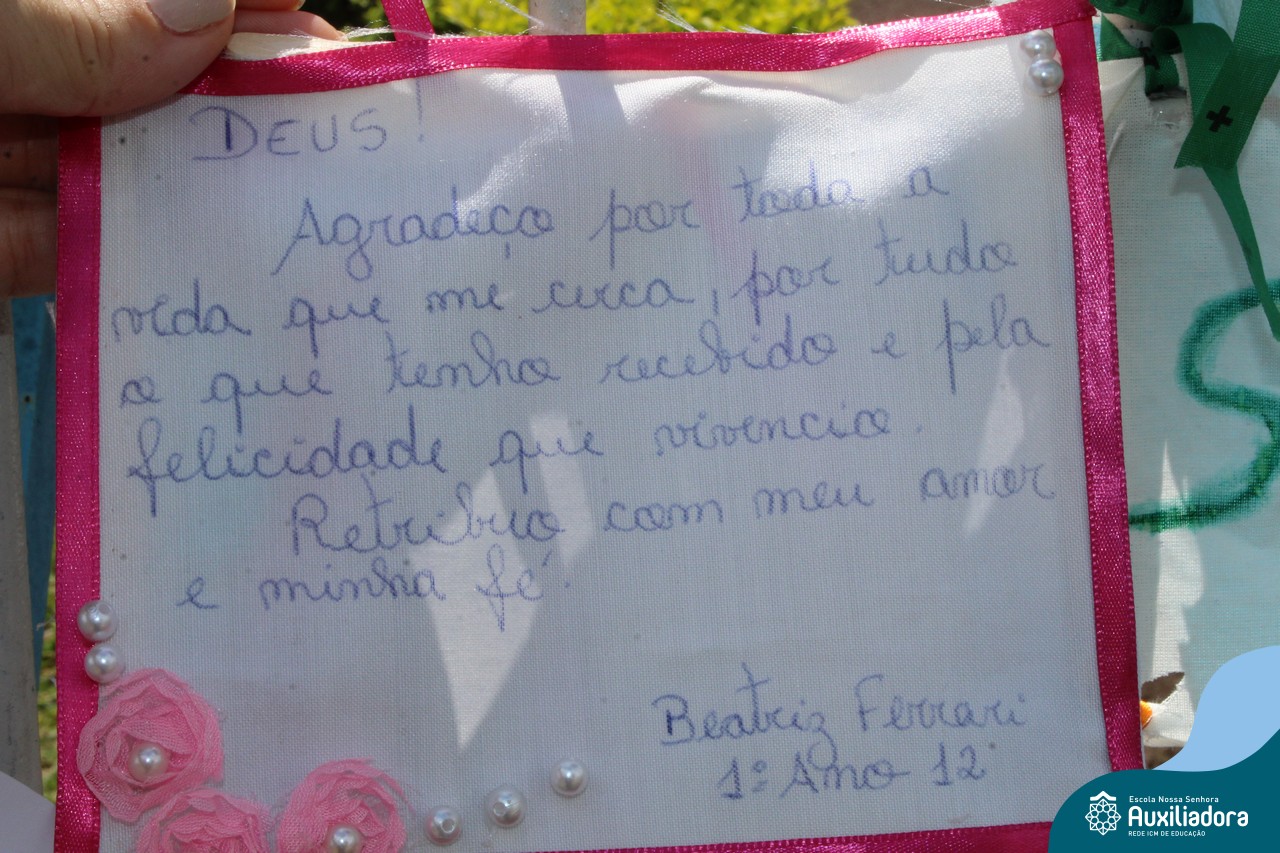 DEUS!
Agradeço por toda a
vida que me cerca, por tudo
o que tenho recebido e pela
felicidade que vivencio.
Retribuo com meu amor
e minha fé.
Beatriz Ferrari
1º Ano 12
S
Escola Nossa Senhora
Auxiliadora
REDE ICM DE EDUCAÇÃO